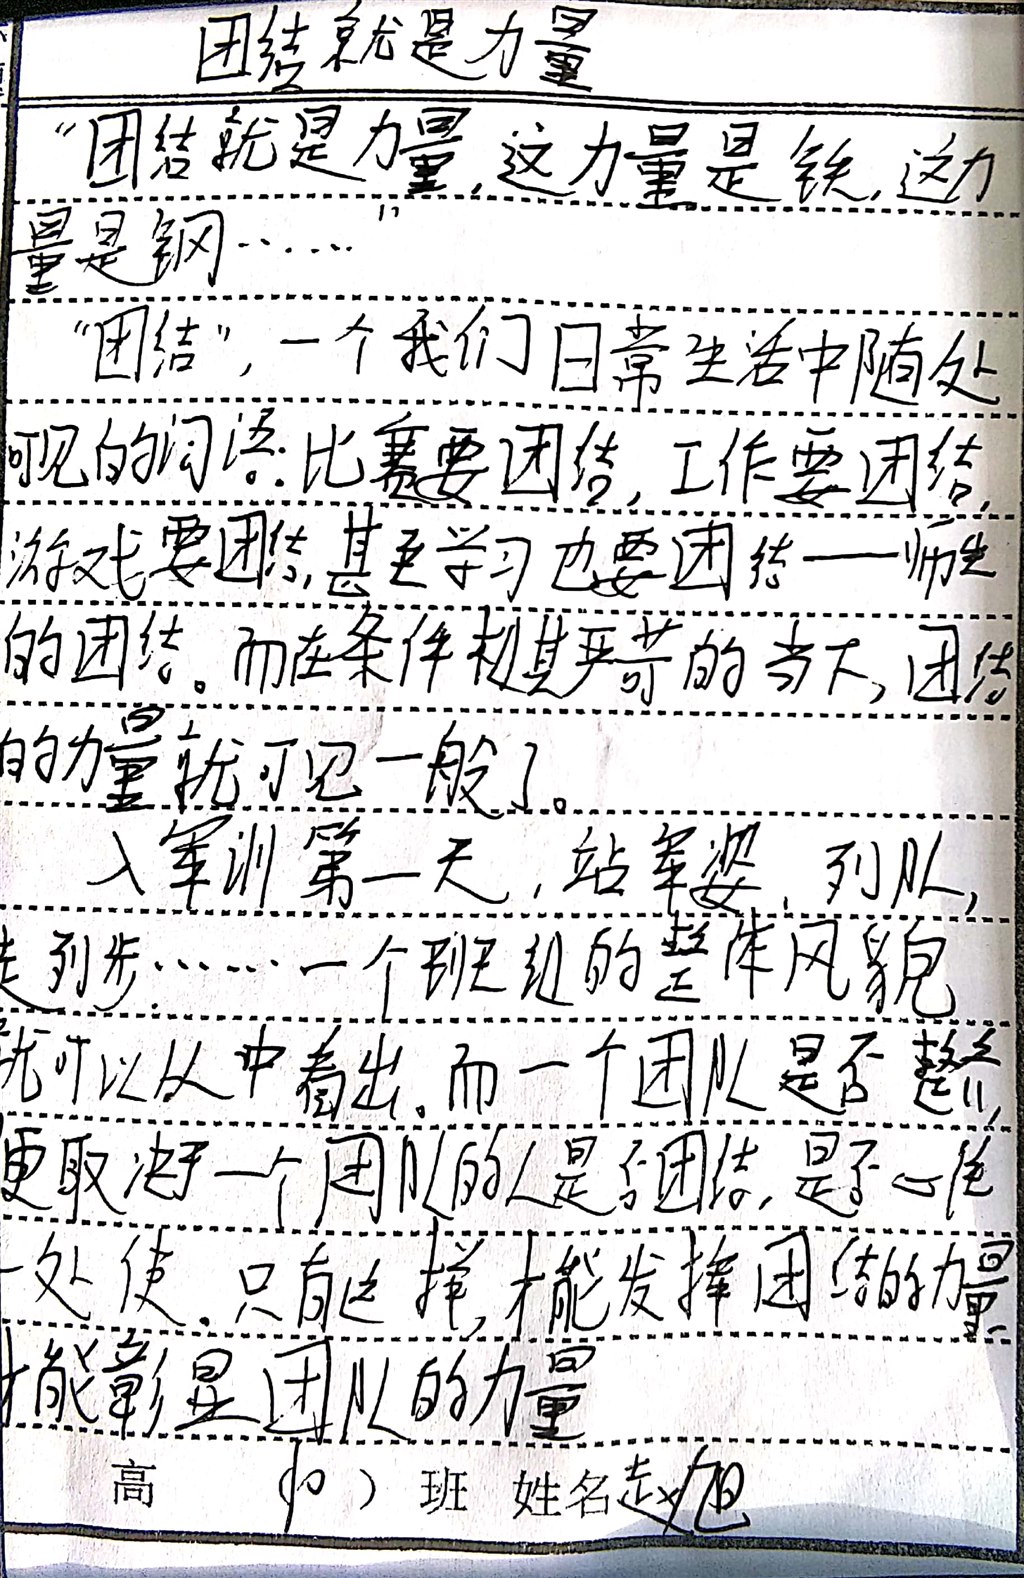 团结就是力量
“团结就是力量，这力量是铁，这力
量是钢……”
“团结”，一个我们日常生活中随处
可见的词语.比赛要团结，工作要团结，
游戏要团结，甚至学习也要团结——师生
的团结。而在条件极其严苛的当下，团结
的力量就可见一般了。
入军训第一天，站军姿、列队，
走列步……一个班组的整体风貌
就可以从中看出。而一个团队是否整齐，
更取决于一个团队的人是否团结，是否心往
一处使.只有这样，才能发挥团结的力量
才能彰显团队的力量
高（10）班 姓名赵旭